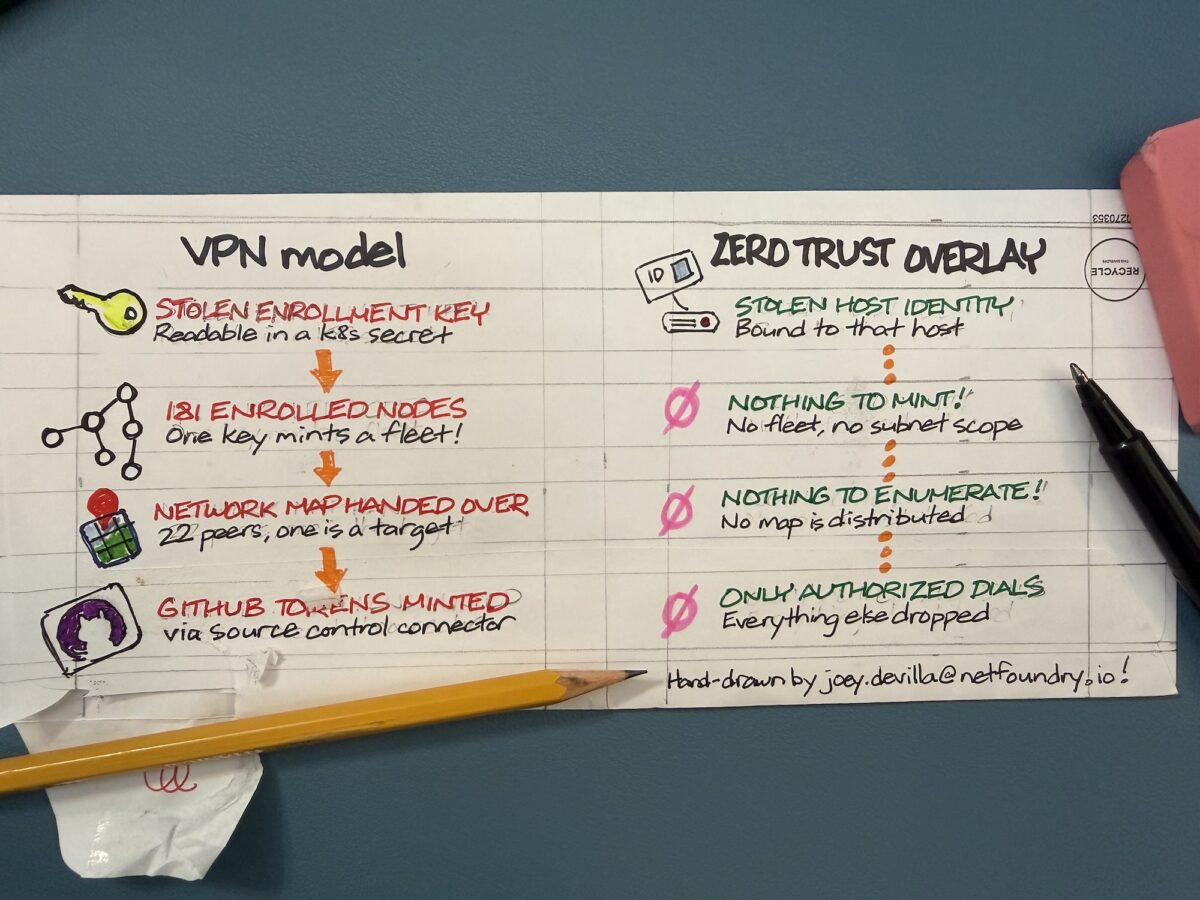 VPN model
STOLEN ENROLLMENT KEY
Readable in a k8s secret
181 ENROLLED NODES
One key mints a fleet!
NETWORK MAP HANDED OVER
22 peers, one is a target
GITHUB TOKENS MINTED
via source control connector
ZERO TRUST OVERLAY
ID
STOLEN HOST IDENTITY
Bound to that host
NOTHING TO MINT!
No fleet, no subnet scope
NOTHING TO ENUMERATE!
No map is distributed
ONLY AUTHORIZED DIALS
Everything else dropped
Hand-drawn by joey.devilla@netfoundry.io!
RECYCLE
THIS ENVELOPE